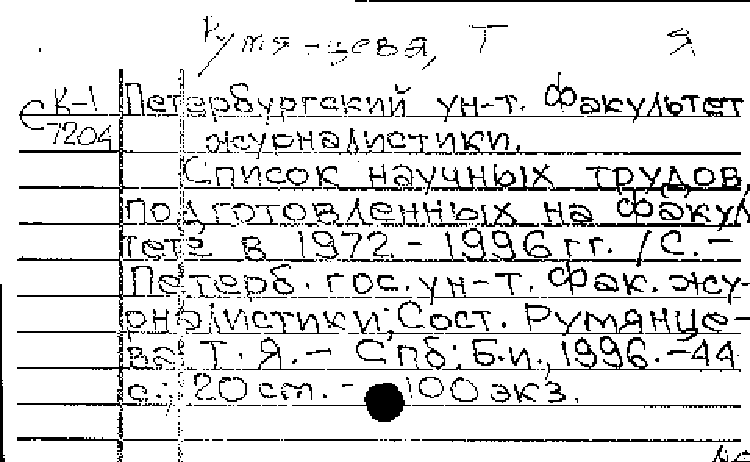 Румя-цева, Т Я
СК-1 Петербургский ун-т. Факультет
7204 журналистики.
Список научных трудов,
подготовленных на факул
тете в 1972-1996 гг. / С.-
Петерб. гос. ун-т. Фак. жу-
рналистики; Сост. Румянце-
ва Т. Я. - Спб: Б.и., 1996. - 44
с.; 20 см. - 100 экз.